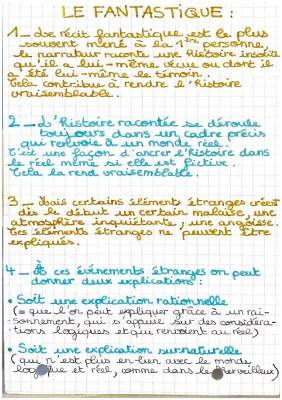 LE FANTASTIQUE :
1_ Le récit fantastique est le plus
souvent mené à la 1ère personne,
le narrateur raconte une histoire insolite
qu'il a lui-même vécue ou dont il
a été lui-même le témoin.
Cela contribue à rendre l'histoire
vraisemblable.
2_ L'histoire racontée se déroule
toujours dans un cadre précis
qui renvoie à un monde réel.
C'est une façon d'ancrer l'histoire dans
le réel même si elle est fictive.
Cela la rend vraisemblable.
3_ Mais certains éléments étranges créent
dès le début un certain malaise, une
atmosphère inquiétante, une angoisse.
Ces éléments étranges ne peuvent être
expliqués.
4_ À ces événements étranges on peut
donner deux explications :
• Soit une explication rationnelle
(= que l'on peut expliquer grâce à un rai-
sonnement, qui s'appuie sur des considéra-
tions logiques et qui renvoient au réel)
• Soit une explication surnaturelle
(qui n'est plus en lien avec le monde
logique et réel, comme dans le Merveilleux)